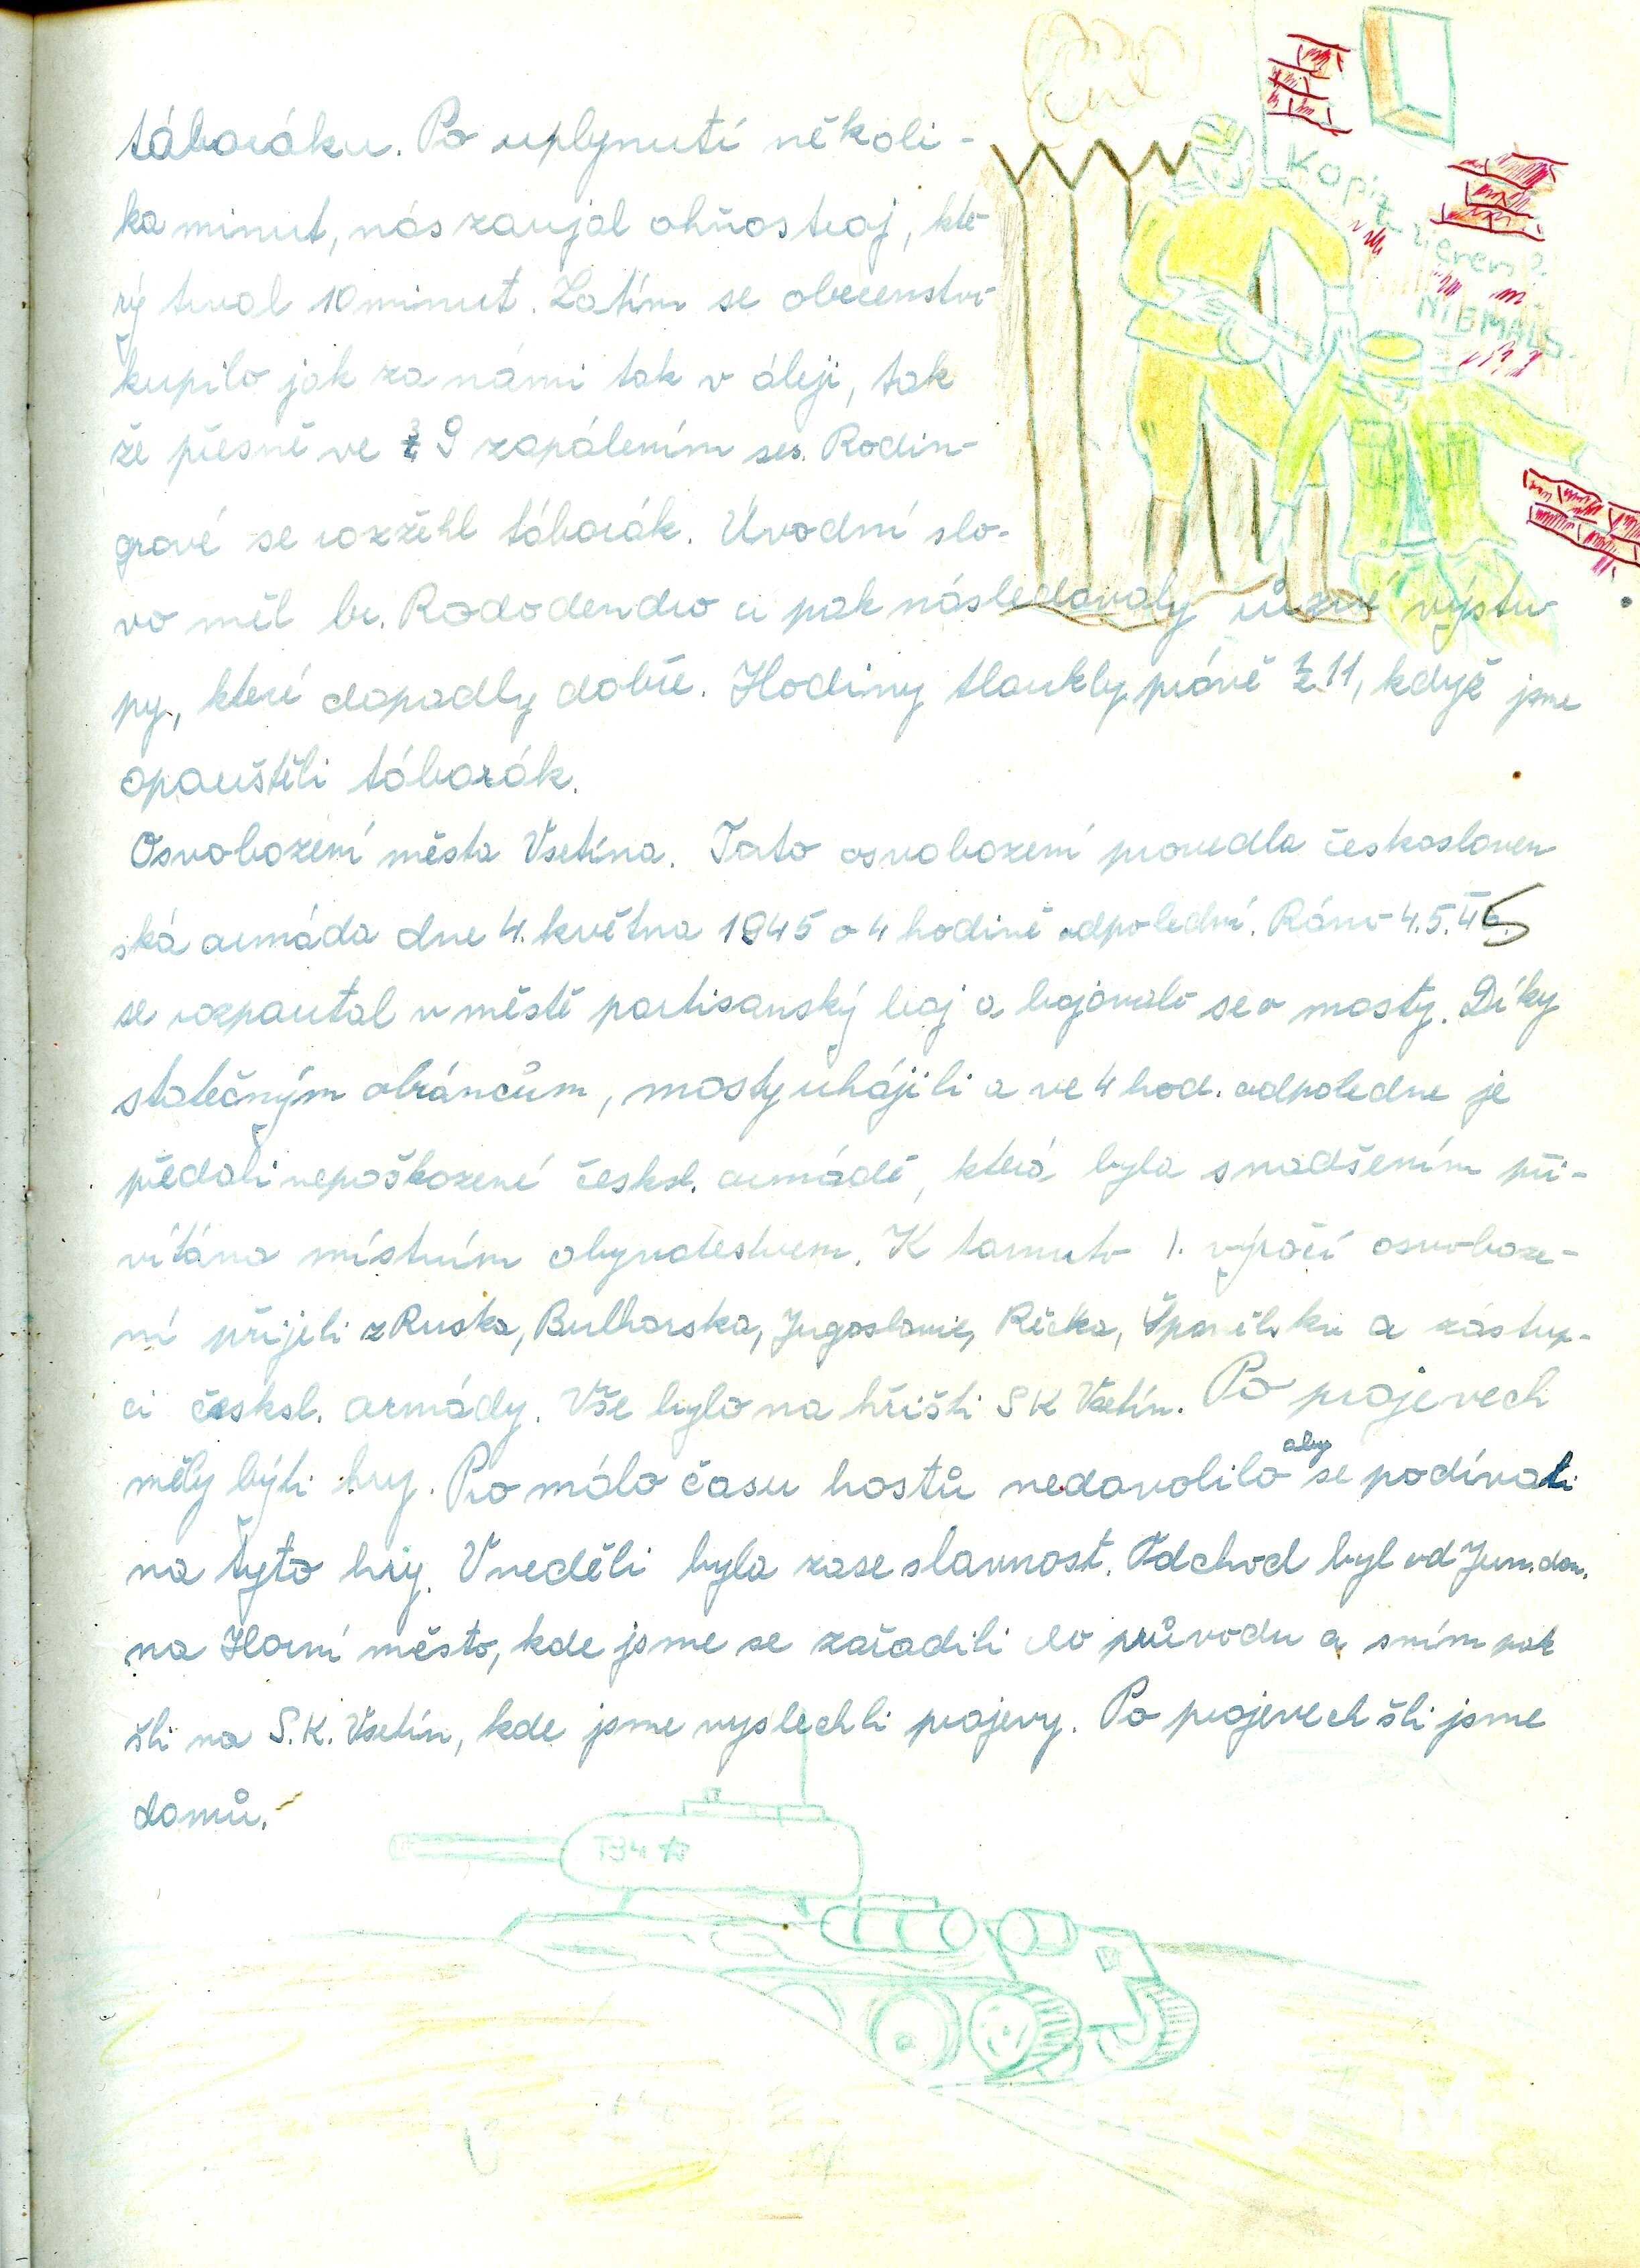 táboráku. Po uplynutí několi-
ka minut, nás zaujal ohňostroj, kte-
rý trval 10 minut. Zatím se obecenstvo
kupilo jak za námi tak v áleji, tak
že přesně ve 9 zapálením ses. Rodin-
grové se rozžehl táborák. Úvodní slo-
vo měl br. Rododendro a pak následovaly různé výstu-
py, které dopadly dobře. Hodiny tloukly právě ½ 11, když jsme
opouštěli táborák.
Osvobození města Vsetína. Toto osvobození provedla českosloven
ská armáda dne 4. května 1945 o 4 hodině odpolední. Ráno 4.5.45
se rozpoutal v městě partisanský boj a bojovalo se o mosty. Díky
statečným obráncům, mosty uhájili a ve 4 hod. odpoledne je
předali nepoškozené česksl. armádě, která byla s nadšením při-
vítána místním obyvatestvem. K tomuto 1. výročí osvoboze-
ní přijeli z Ruska, Bulharska, Jugoslavie, Řecka, Španělska a zástup-
ci česksl. armády. Vše bylo na hřišti SK Vsetín. Po projevech
měly býti hry. Pro málo času hostů nedovolilo aby se podívati
na tyto hry. V neděli byla zase slavnost. Odchod byl od Jun. dom.
na Horní město, kde jsme se zařadili do průvodu a s ním pak
šli na S.K. Vsetín, kde jsme vyslechli projevy. Po projevech šli jsme
domů.
NIEMALS.
T34